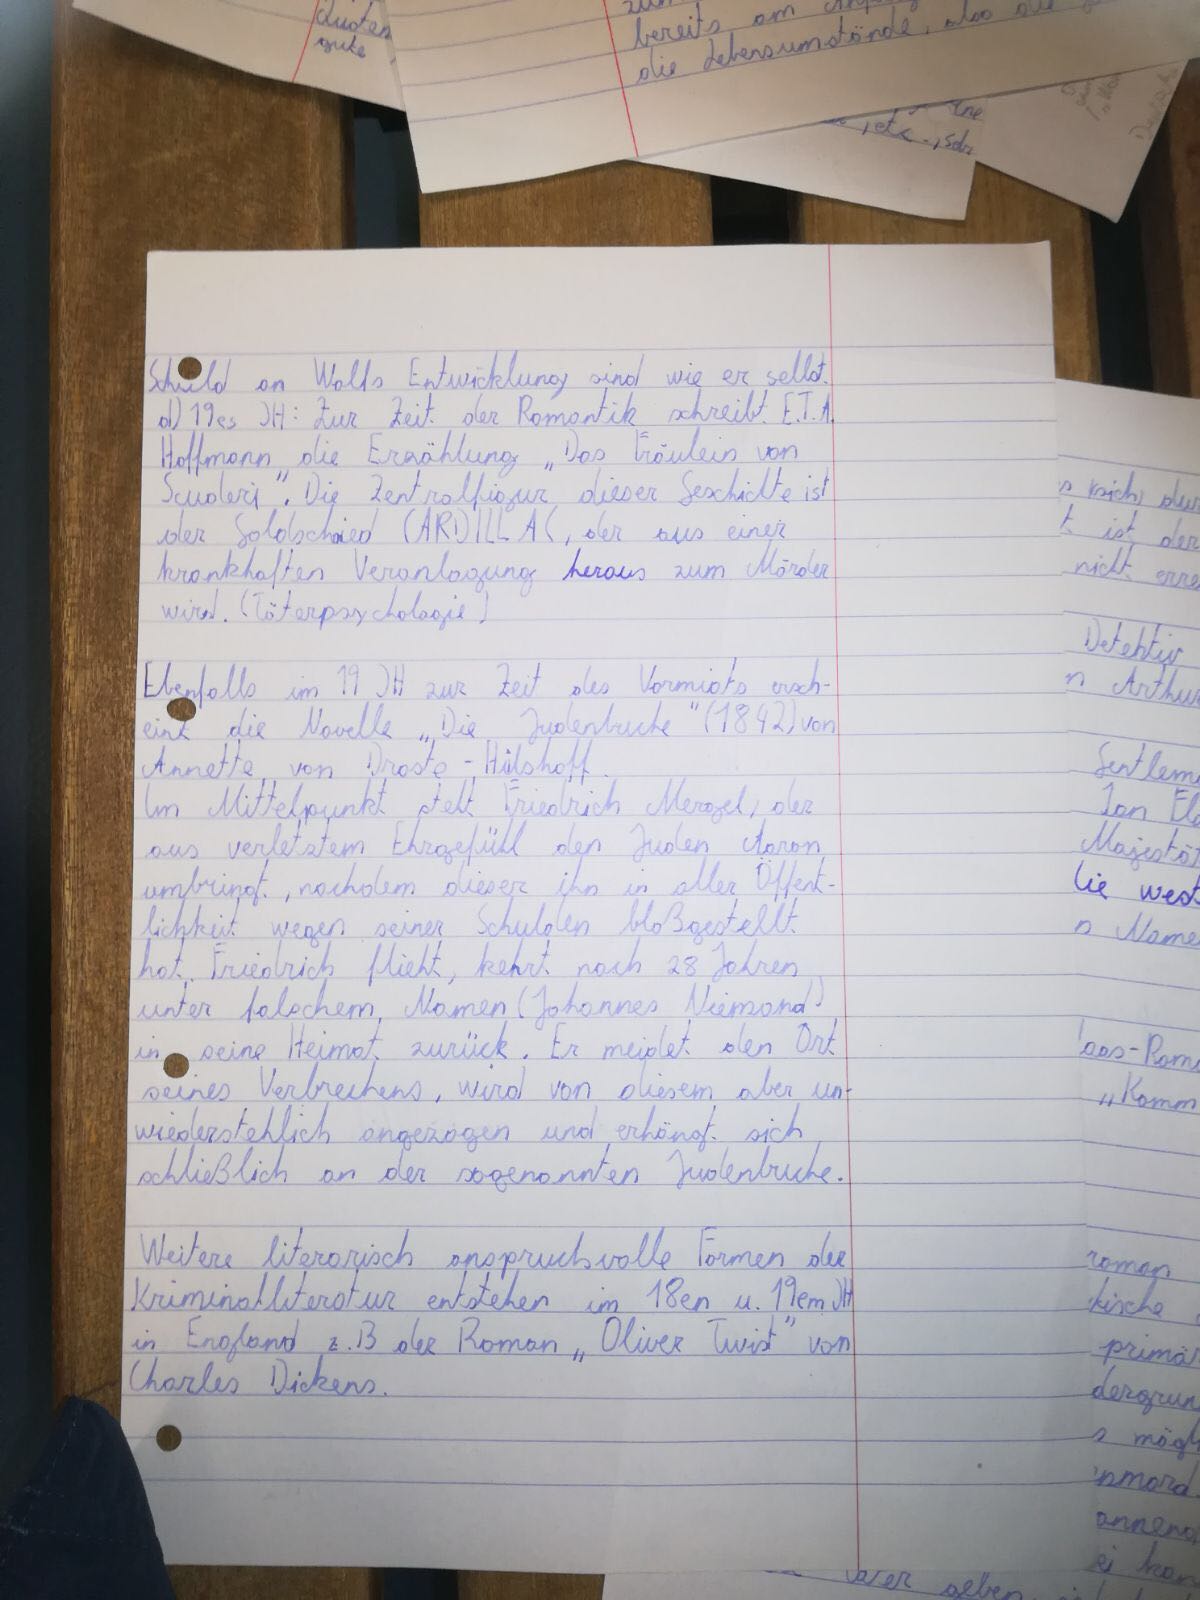 gute
bereits am
die Lebensumstände, also die
, etc.,
Schuld an Wolfs Entwicklung sind wie er selbst.
d) 19es JH: Zur Zeit der Romantik schreibt E.T.A.
Hoffmann die Erzählung „Das Fräulein von
Scuderi". Die Zentralfigur dieser Geschichte ist
der Goldschmied CARDILLAC, der aus einer
krankhaften Veranlagung heraus zum Mörder
wird. (Täterpsychologie)
Ebenfalls im 19 JH zur Zeit des Vormiäts ersch-
eint die Novelle „Die Judenbuche" (1842) von
Annette von Droste-Hülshoff.
Im Mittelpunkt stelt Friedrich Mergel, der
aus verletztem Ehrgefühl den Juden Aaron
umbringt, nachdem dieser ihn in aller Öffent-
lichkeit wegen seiner Schulden bloßgestellt
hat. Friedrich flieht, kehrt nach 28 Jahren
unter falschem Namen (Johannes Niemand)
in seine Heimat zurück. Er meidet den Ort
seines Verbrechens, wird von diesem aber un-
wiederstehlich angezogen und erhängt sich
schließlich an der sogenannten Judenbuche.
Weitere literarisch anspruchsvolle Formen der
Kriminalliteratur entstehen im 18en u. 19em JH
in England z.B der Roman „Oliver Twist" von
Charles Dickens.
t ist der
nicht erre
Detektiv
n Arthur
Gentlem
Ian Fle
Majestät
Die west
n Namen
aos-Roma
„Komm
roman
tische
primär
dergrun
s mögl
nmord
annend
ei kan
geben